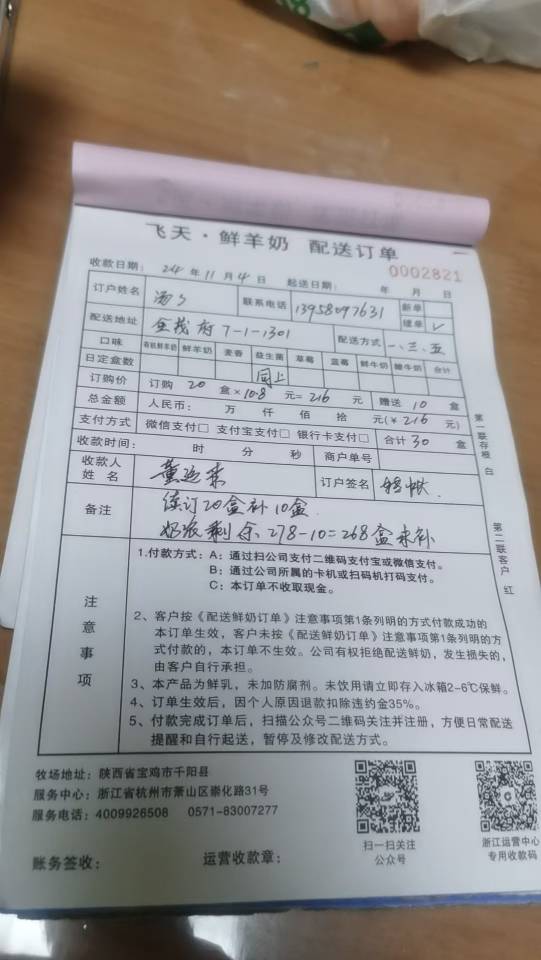 飞天·鲜羊奶 配送订单
收款日期: 24年11月4日 起送日期: 年 月 日
0002821
订户姓名 汤 联系电话 13958097631 新单
续单 ✓
配送地址 金 府 7-1-1301 配送方式 一、三、五
口味 有机鲜羊奶 鲜羊奶 麦香 益生菌 草莓 蓝莓 鲜牛奶 酸牛奶 合计
日定盒数 同上
订购价 订购 20 盒×10.8 元=216 元 赠送 10 盒
总金额 人民币: 万 仟 佰 拾 元(¥216 元)
支付方式 微信支付□ 支付宝支付□ 银行卡支付□ 合计30 盒
收款时间: 时 分 秒 商户单号
收款人姓名 黄 订户签名
备注 续订20盒补10盒
奶 剩余278-10=268盒未补
第一联存根 白
第二联客户 红
注意事项
1.付款方式: A: 通过扫公司支付二维码支付宝或微信支付。
B: 通过公司所属的卡机或扫码机打码支付。
C: 本订单不收取现金。
2、客户按《配送鲜奶订单》注意事项第1条列明的方式付款成功的
本订单生效,客户未按《配送鲜奶订单》注意事项第1条列明的方
式付款的,本订单不生效。公司有权拒绝配送鲜奶,发生损失的,
由客户自行承担。
3、本产品为鲜乳,未加防腐剂。未饮用请立即存入冰箱2-6℃保鲜。
4、订单生效后,因个人原因退款扣除违约金35%。
5、付款完成订单后,扫描公众号二维码关注并注册,方便日常配送
提醒和自行起送,暂停及修改配送方式。
牧场地址: 陕西省宝鸡市千阳县
服务中心: 浙江省杭州市萧山区崇化路31号
服务电话: 4009926508 0571-83007277
扫一扫关注
公众号
浙江运营中心
专用收款码
账务签收: 运营收款章: